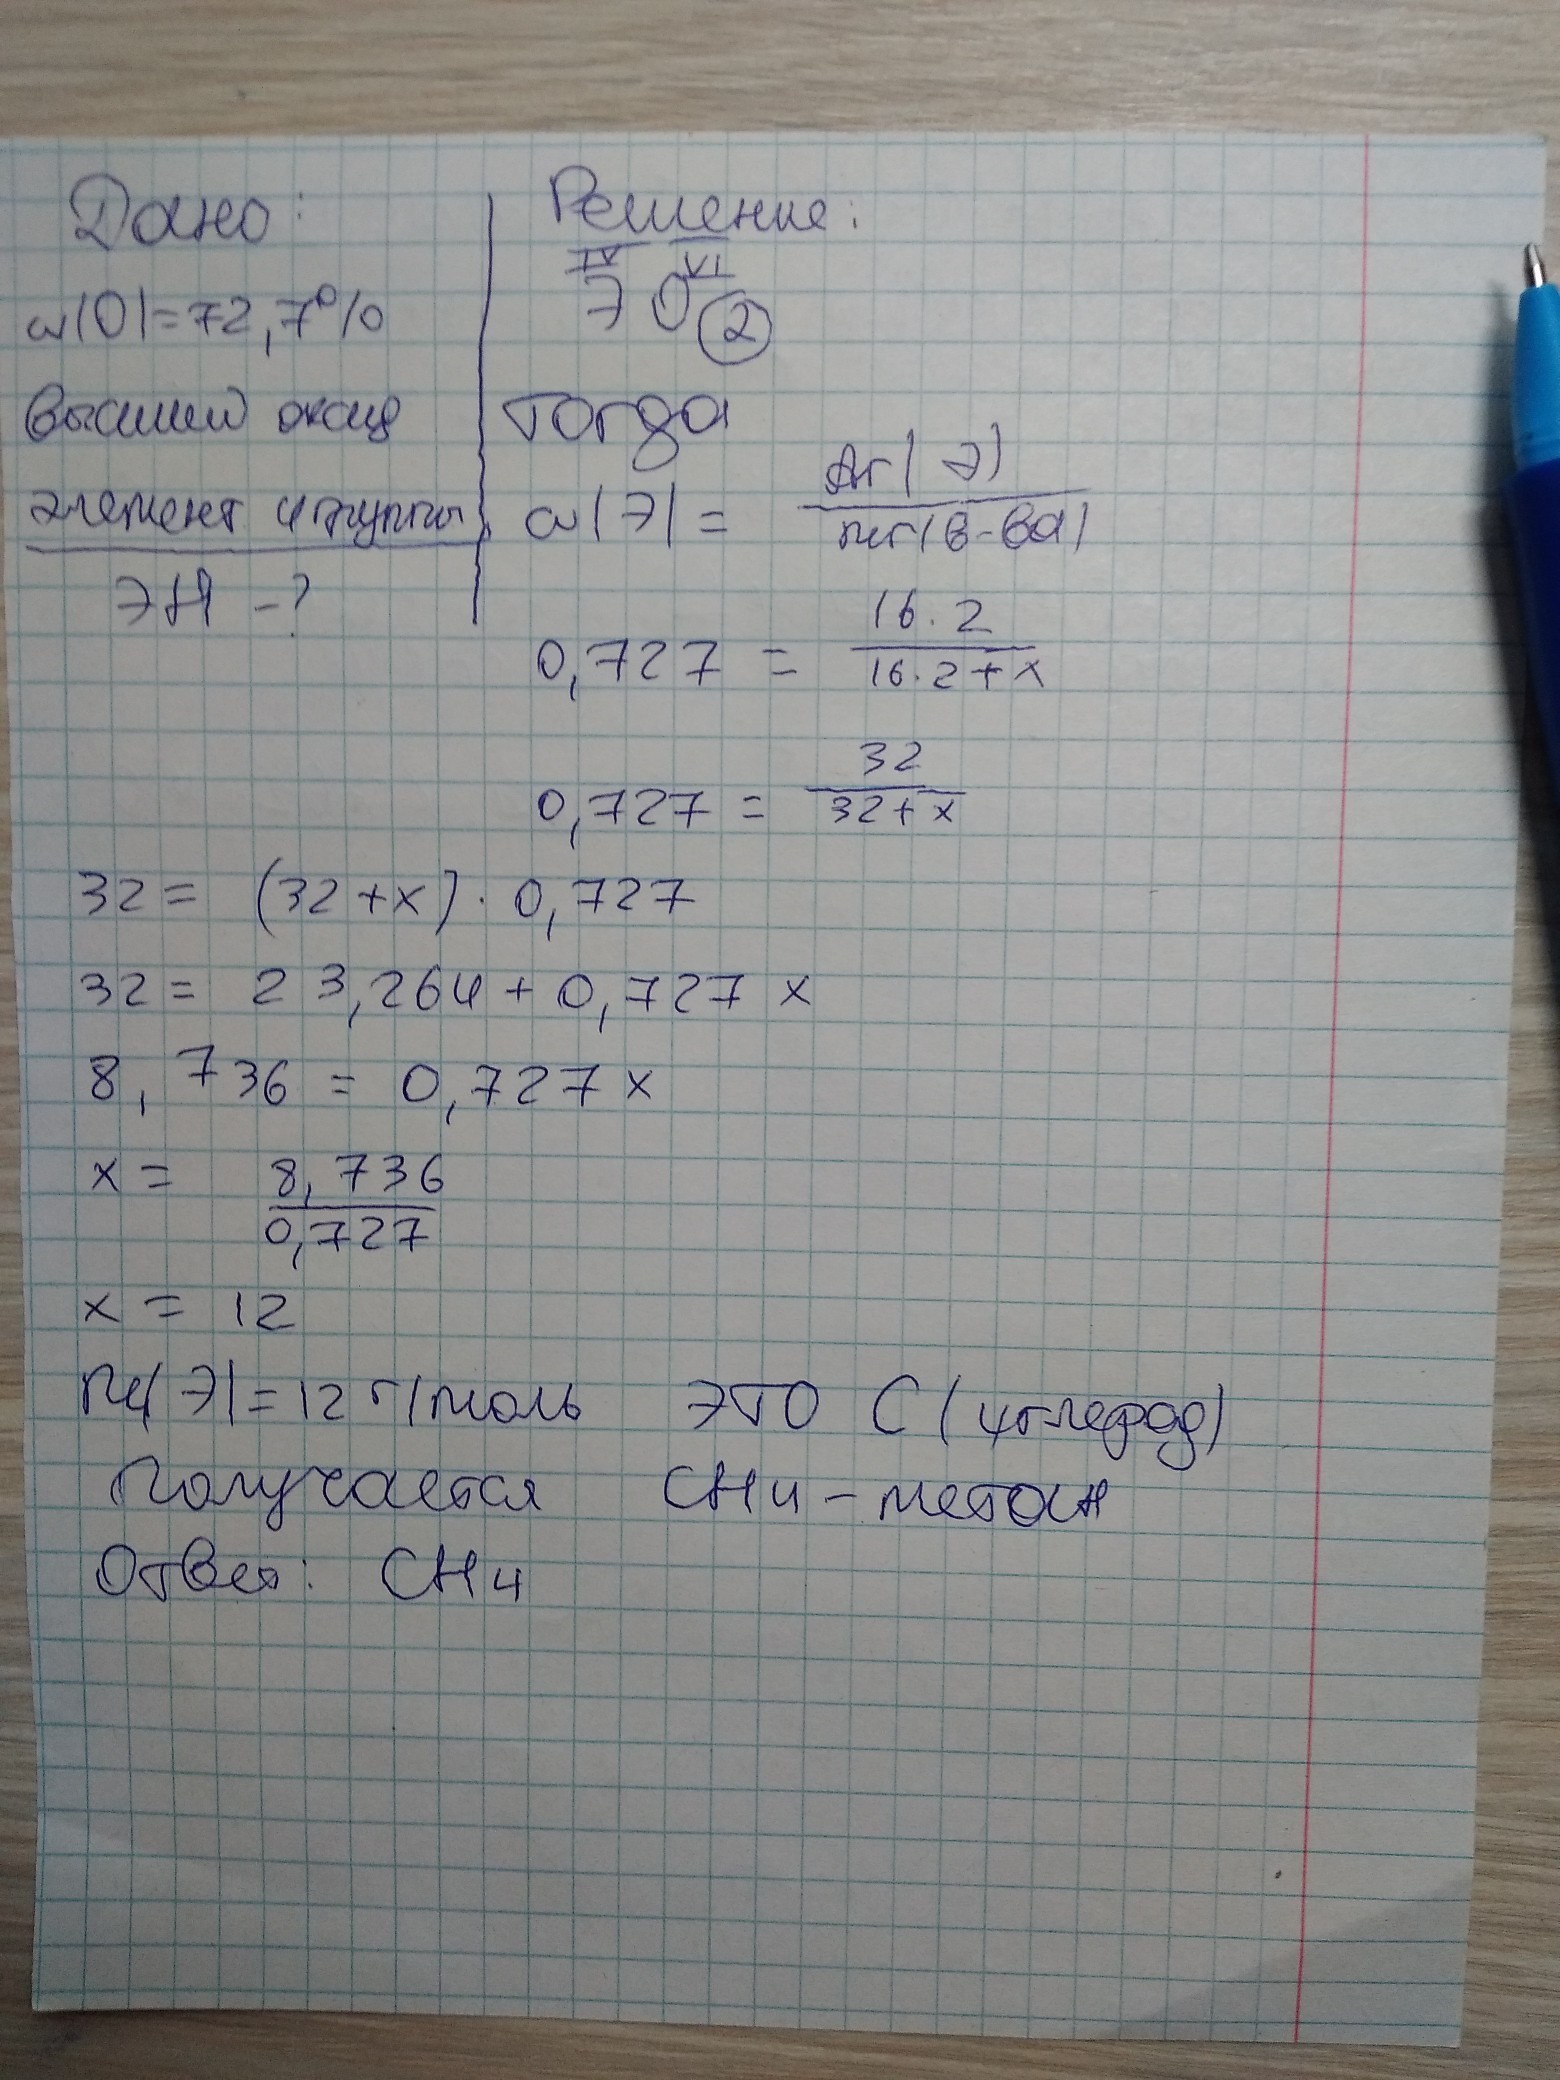 Дано:
w(O)=72,7%
Высший оксид
элемент 4 группы
ЭH -?
Решение:
IV VI
Э O 2
Тогда
w(Э)= Ar(Э) / Mr(в-ва)
0,727 = 16·2 / 16·2+x
0,727 = 32 / 32+x
32= (32+x)·0,727
32= 23,264+0,727 x
8,736 = 0,727 x
x= 8,736 / 0,727
x = 12
M(Э)=12 г/моль это C (углерод)
Получается CH4-метан
Ответ: CH4